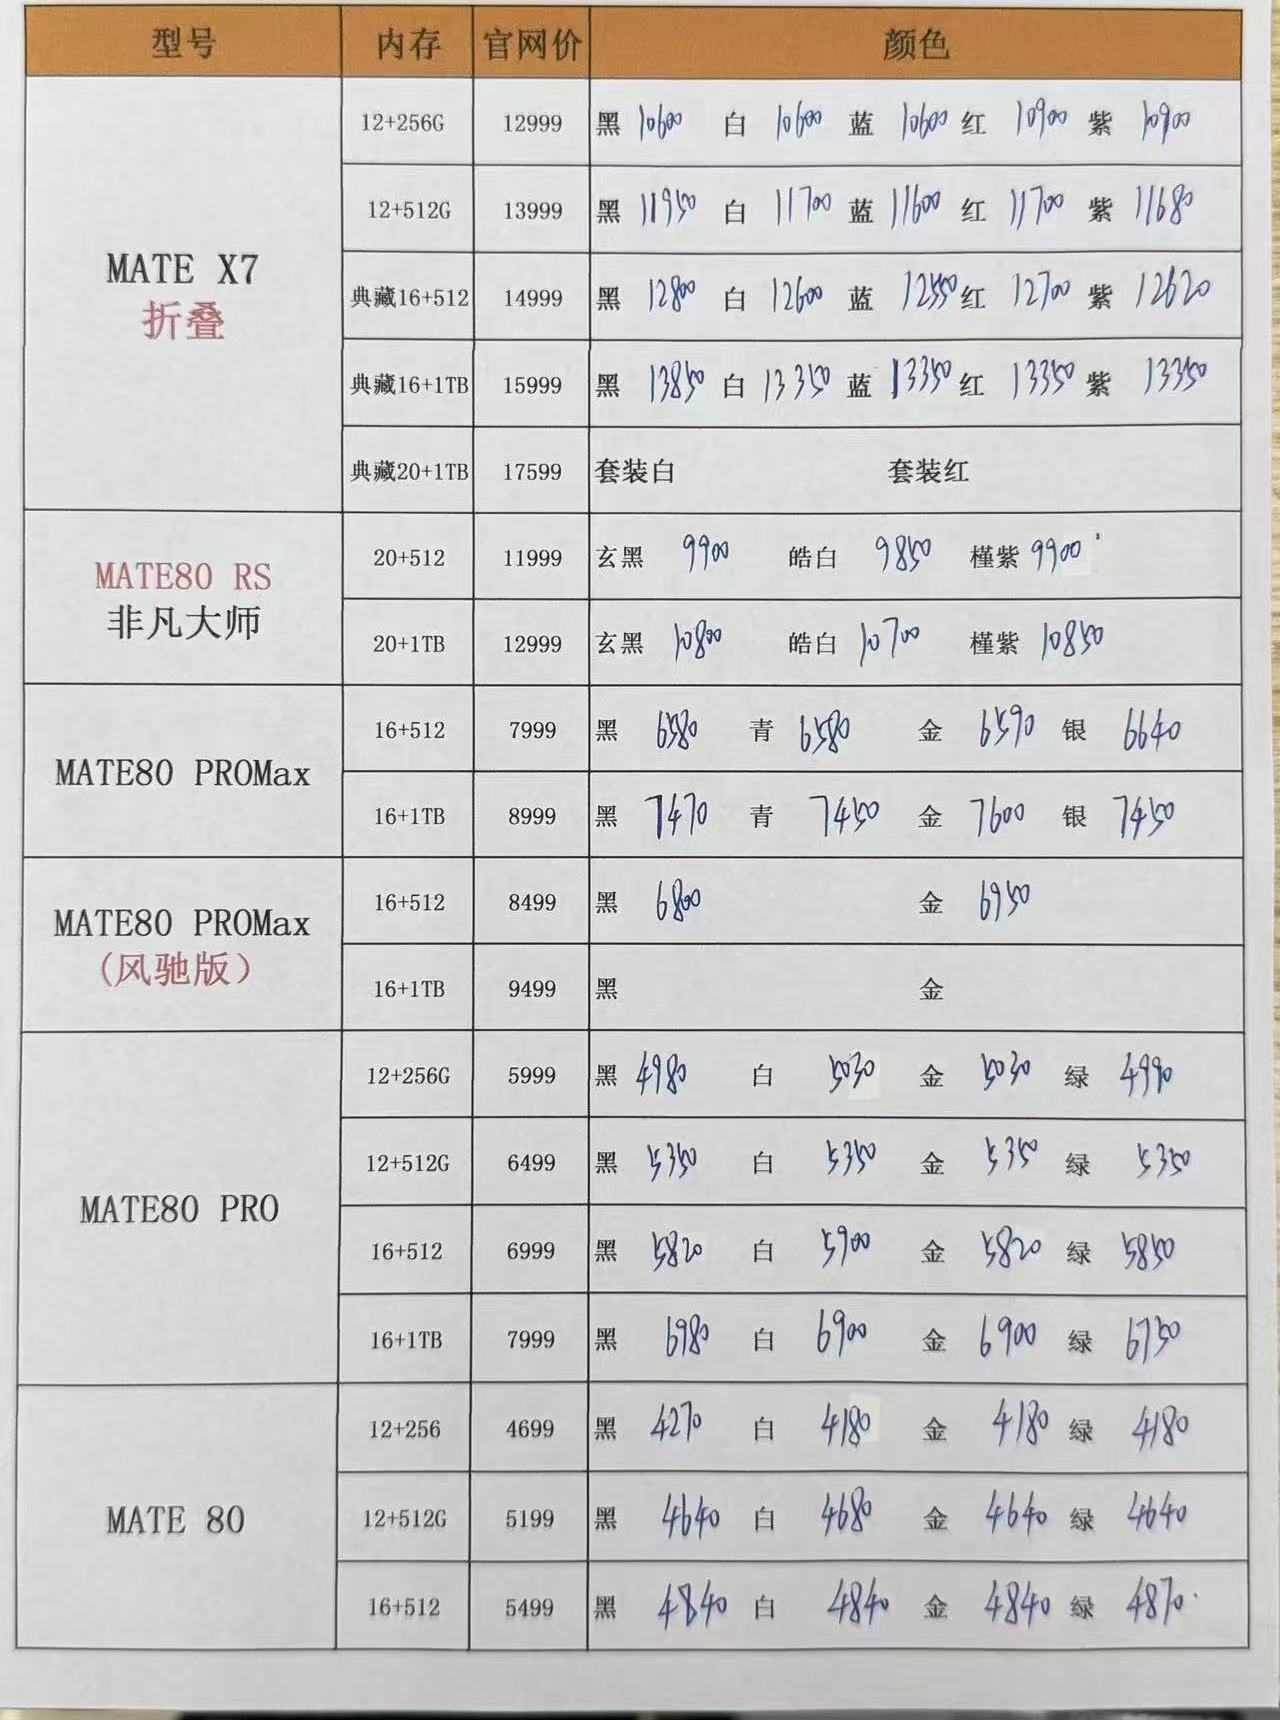 型号 内存 官网价 颜色
MATE X7
折叠
12+256G 12999 黑 10600 白 10600 蓝 10600 红 10900 紫 10900
12+512G 13999 黑 11950 白 11700 蓝 11600 红 11700 紫 11680
典藏16+512 14999 黑 12800 白 12600 蓝 12550 红 12700 紫 12620
典藏16+1TB 15999 黑 13850 白 13350 蓝 13350 红 13350 紫 13350
典藏20+1TB 17599 套装白 套装红
MATE80 RS
非凡大师
20+512 11999 玄黑 9900 皓白 9850 槿紫 9900
20+1TB 12999 玄黑 10800 皓白 10700 槿紫 10850
MATE80 PROMax
16+512 7999 黑 6580 青 6580 金 6590 银 6640
16+1TB 8999 黑 7470 青 7450 金 7600 银 7450
MATE80 PROMax
(风驰版)
16+512 8499 黑 6800 金 6950
16+1TB 9499 黑 金
MATE80 PRO
12+256G 5999 黑 4980 白 5030 金 5030 绿 4990
12+512G 6499 黑 5350 白 5350 金 5350 绿 5350
16+512 6999 黑 5820 白 5900 金 5820 绿 5850
16+1TB 7999 黑 6980 白 6900 金 6900 绿 6750
MATE 80
12+256 4699 黑 4270 白 4180 金 4180 绿 4180
12+512G 5199 黑 4640 白 4680 金 4640 绿 4640
16+512 5499 黑 4840 白 4840 金 4840 绿 4870